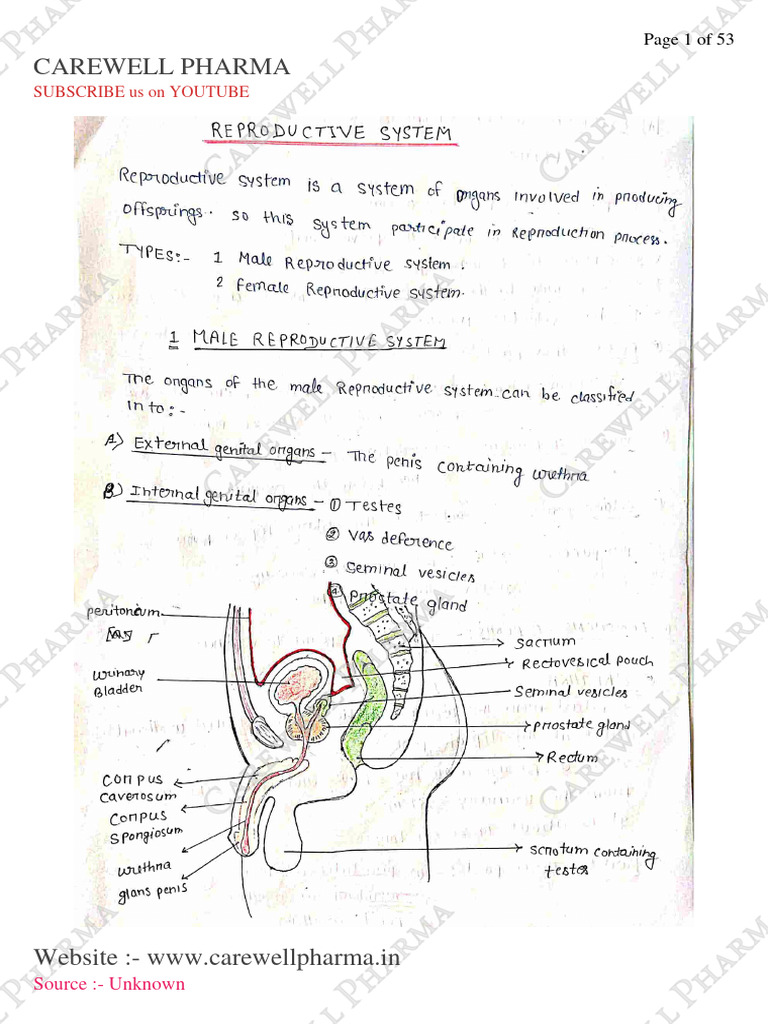 Page 1 of 53
CAREWELL PHARMA
SUBSCRIBE us on YOUTUBE
REPRODUCTIVE SYSTEM
Reproductive system is a system of organs involved in producing
offsprings. so this system participate in Reproduction process.
TYPES:- 1 Male Reproductive system.
2 Female Reproductive system.
1 MALE REPRODUCTIVE SYSTEM
The organs of the male Reproductive system can be classified
in to:-
A) External genital organs - The penis containing urethra
B) Internal genital organs - ① Testes
② Vas deference
③ Seminal vesicles
④ Prostate gland
peritonium
Urinary
Bladder
Corpus
Caverosum
Corpus
Spongiosum
urethra
glans penis
Sacrum
Rectovesical pouch
Seminal vesicles
Prostate gland
Rectum
Scrotum containing
testes
Website :- www.carewellpharma.in
Source :- Unknown
CAREWELL PHARMA